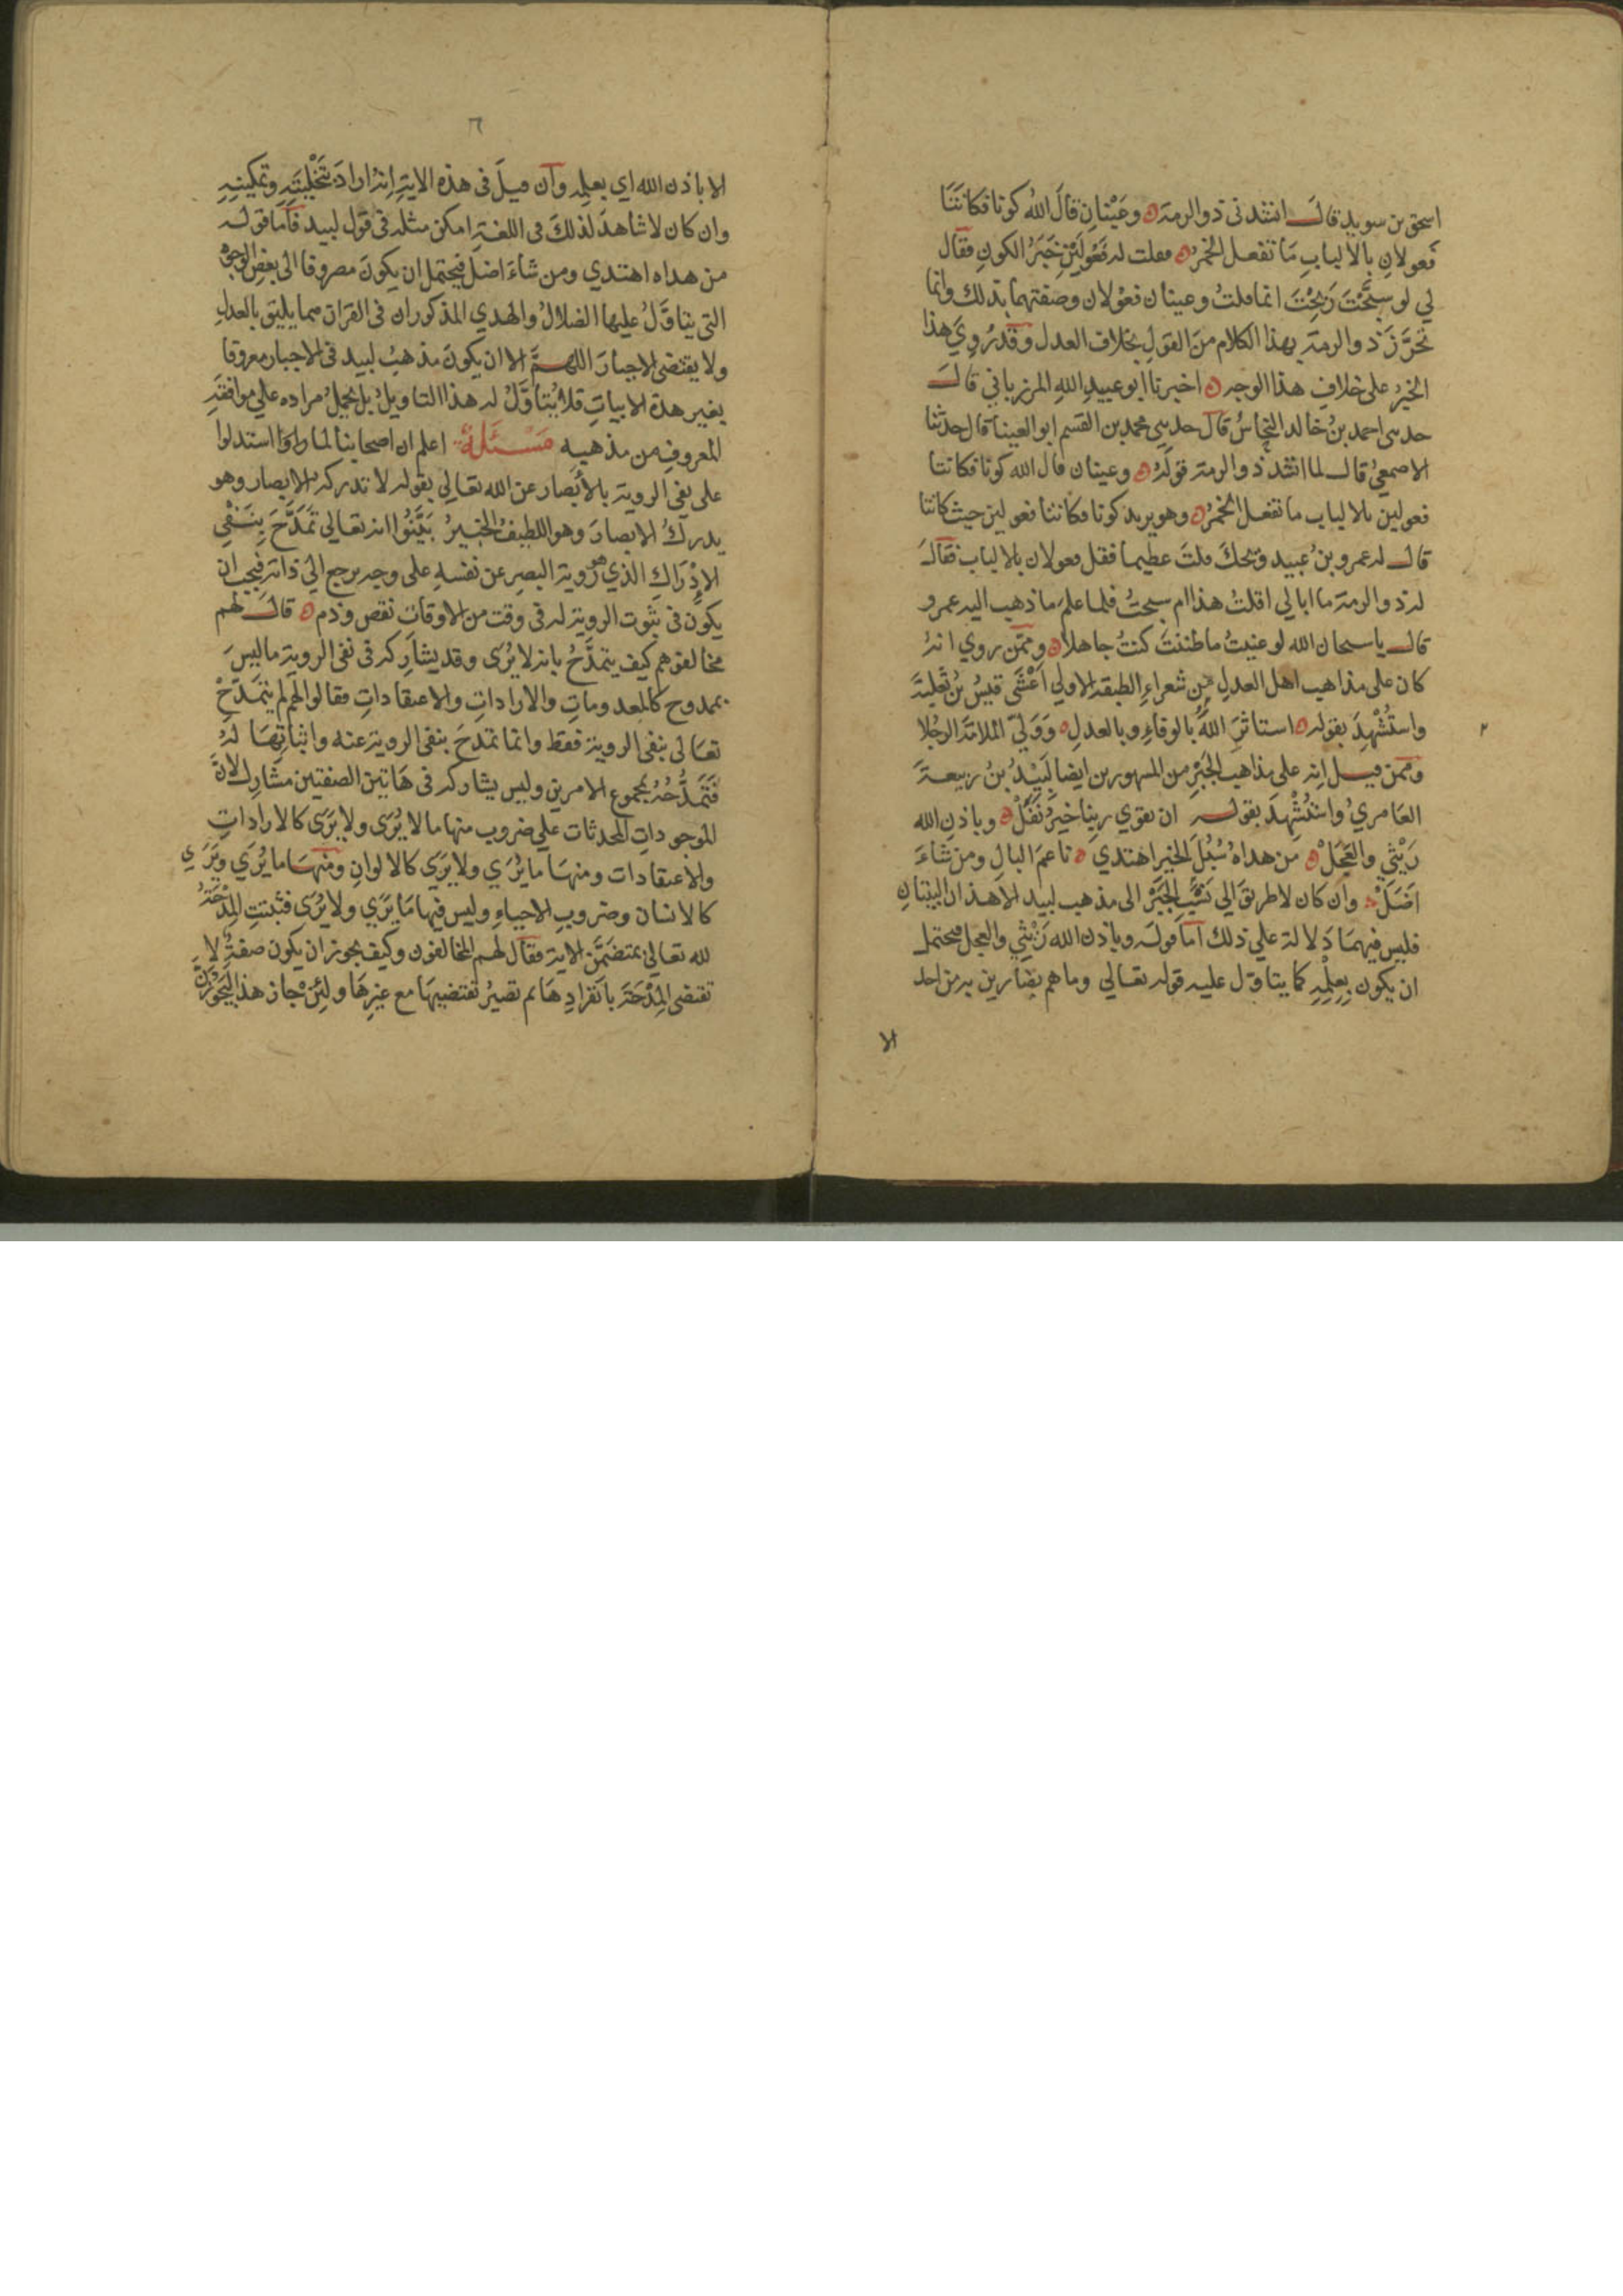 اسحق بن سويد قالـ انشدنى ذو الرمة ه وعَيْنانِ قالَ اللهُ كونا فكانَتَا
فَعولانِ بالالبابِ مَا تفعل الخمرُ ه فقلت له فَعُولَيْنِ خَبَرُ الكونِ فقال
لي لو سَبَّحْتَ رَبِحْتَ انما قلتُ وعينان فعوْلان وصفتهما بذلك وانما
تحرَّزَ ذو الرمة بهذا الكلام منَ القولِ بخلاف العدل وقد رُوِيَ هذا
الخبرُ على خلافِ هذا الوجه ه اخبرنا ابو عبيدِ اللهِ المرزباني قالـ
حدثنى احمد بنُ خالد النخاسُ قال حدثنى محمد بن القسم ابو العينا قال حدثنا
الاصمعيُ قالـ لما انشد ذو الرمة قولَهُ ه وعينان قال الله كونا فكانتا
فعولين بالالباب ما تفعل الخمرُ ه وهو يريد كونا فكانتا فعولين حيث كانتا
قالـ له عمرو بنُ عُبيد ويحكَ قلتَ عظيما فقل فعولان بالالباب فقالـ
له ذو الرمة ما ابالي اقلتُ هذا ام سبحتُ فلما علم ما ذهب اليه عمرو
قالـ يا سبحان الله لو عنيتُ ما ظننتَ كنتُ جاهلا ه وممّن روي انهُ
كان على مذاهب اهل العدلِ مِن شعراءِ الطبقه الاولي اَعْشَى قيسِ بنُ ثَعْلَبةَ
واستُشْهِدَ بقوله ه استاثَرَ اللهُ بالوفاءِ وبالعدلِ ه وَوَلَّيَ المَلامَةَ الرجُلا
وممن قيل انه على مذاهب الجَبْرِ من المشهورين ايضا لَبِيْدُ بنُ ربيعةَ
العَامريُ واسْتُشْهِدَ بقوله ان تقوي ربنا خيرُ نَفَلْ ه وباذنِ الله
رَيْثي والعَجَلْ ه من هداهُ سُبُلَ الخير اهتدي ه ناعمَ البالِ ومن شاءَ
اَضَلْ ه وان كان لا طريقَ الي نَسْبِ الجَبْرِ الى مذهب لبيد الا هذان البيتانِ
فليس فيهمَا دَلالة علي ذلك اما قوله وباذن الله رَيْثي والعجل فيحتمل
ان يكون بِعِلْمِهِ كما يتاوّل عليه قوله تعالي وما هم بضارين به من احد
الا
٦
الا باذن الله اي بعلمه وان قيلَ فى هذه الاية انه ارادَ بتَخْلِيَتِهِ وتمكينِهِ
وان كان لا شاهدَ لذلكَ فى اللغة امكن مثله فى قول لبيد فاما قوله
من هداه اهتدي ومن شاءَ اضلَّ فيحتمل ان يكونَ مصروفا الى بعض الوجوه
التى يتاوَّلُ عليها الضلالُ والهدي المذكوران فى القرآن مما يليق بالعدلِ
ولا يقتضى الاجبارَ اللهمَّ الا ان يكونَ مذهبُ لبيد فى الاجبار معروفا
بغير هذه الابياتِ فلا يُتأوَّلُ له هذا التاويلُ بل يحملُ مراده علي موافقةِ
المعروف من مذهبه مَسْئَلَةٌ اعلم ان اصحابنا لما راوا استدلوا
على نفى الروية بالأبصار عن الله تعالي بقوله لا تدركه الابصار وهو
يدركُ الابصارَ وهو اللطيفُ الخبيرُ بَيَّنُوا انه تعالي تَمَدَّحَ بِنَفْيِ
الإدْرَاكِ الذي هو روية البصرِ عن نفسهِ على وجه يرجع الي ذاته فيجب ان
يكون فى ثبوت الروية له فى وقت من الاوقات نقص وذم ه قالـ لهم
مخالفوهم كيف يتمدَّحُ بانه لا يُرَى وقد يشارِكه فى نفى الروية ما ليسَ
بممدوح كالمعدوماتِ والاراداتِ والاعتقاداتِ فقالوا لهم لم يَتمَدَّحْ
تعَالى بنفى الروية فقط وانما تمدحَ بنفى الروية عنه واثباتِهَا لهُ
فَتَمَدُّحُهُ بمجموع الامرين وليس يشاركه فى هَاتين الصفتين مشارك لانّ
الموجوداتِ المحدثات علي ضروب منها ما لا يُرَى ولا يَرَى كالاراداتِ
والاعتقادات ومنهَا ما يُرَي ولا يَرَي كالالوانِ ومنهَا ما يُرَي ويَرَي
كالانسان وضروبِ الاحياءِ وليس فيها مَا يَرَي ولا يُرَى فثبتتِ المِدْحَةُ
لله تعالي بمتضمَّن الاية فقال لهم المخالفون وكيف يجوز ان يكون صفةٌ لا
تقتضى المِدْحَةَ بانفرادِهَا ثم تصيرُ تقتضيهَا مع غيرِهَا ولَئِنْ جاز هذا ليَجُوْزَنَّ